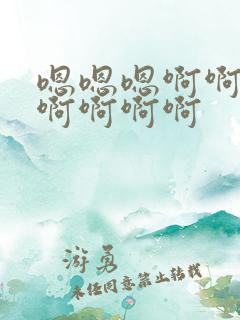 嗯嗯嗯啊啊
啊啊啊啊
游勇
未经同意禁止转载